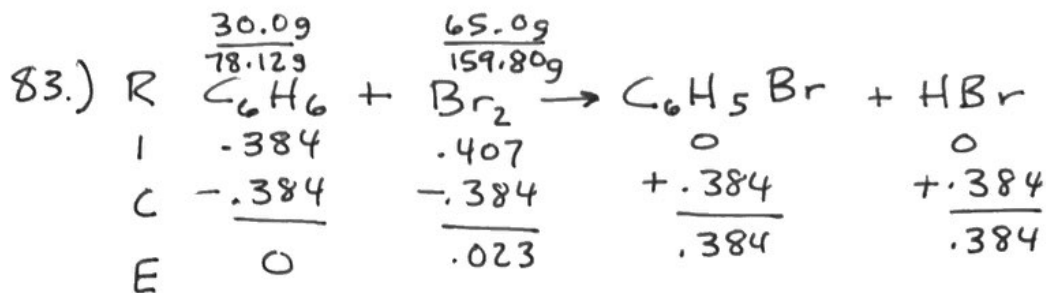 30.0g 65.0g
78.12g 159.80g
83.) R C6H6 + Br2 → C6H5Br + HBr
I .384 .407 0 0
C -.384 -.384 +.384 +.384
E 0 .023 .384 .384